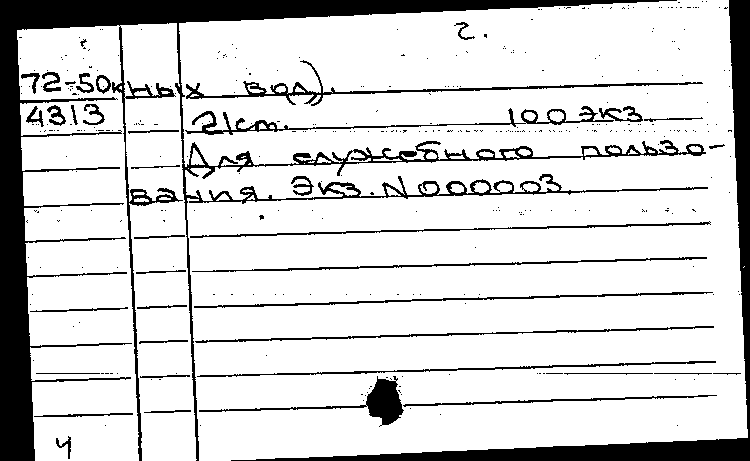 2.
72-50к ных вод).
4313 21cm. 100 экз.
Для служебного пользо-
вания. Экз. N000003.
ч